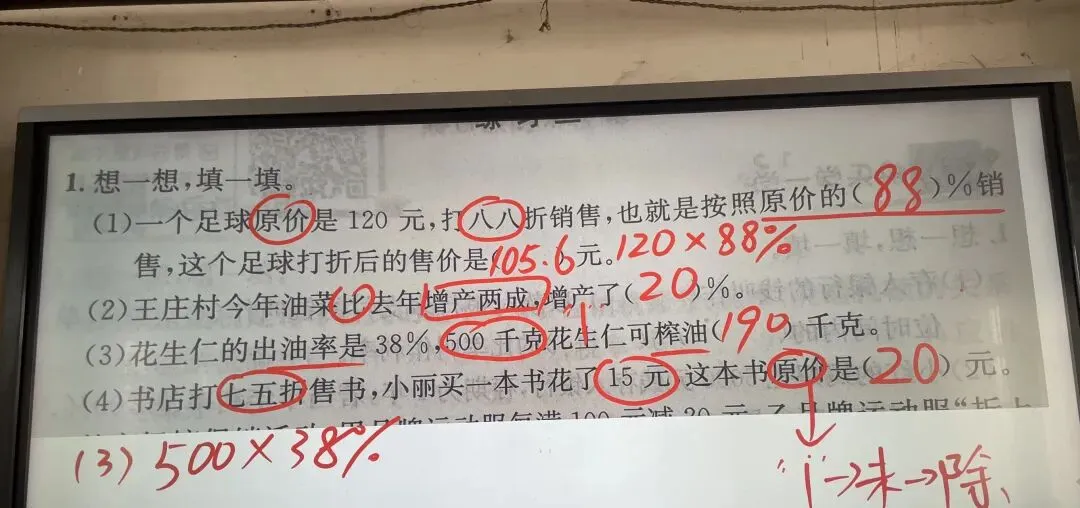 1. 想一想,填一填。
(1)一个足球原价是 120 元,打八八折销售,也就是按照原价的(88)%销
售,这个足球打折后的售价是(105.6)元。120×88%
(2)王庄村今年油菜比去年增产两成,增产了(20)%。
"1"
(3)花生仁的出油率是 38%,500 千克花生仁可榨油(190)千克。
(4)书店打七五折售书,小丽买一本书花了 15 元,这本书原价是(20)元。
(3) 500×38%
"1"→未→除